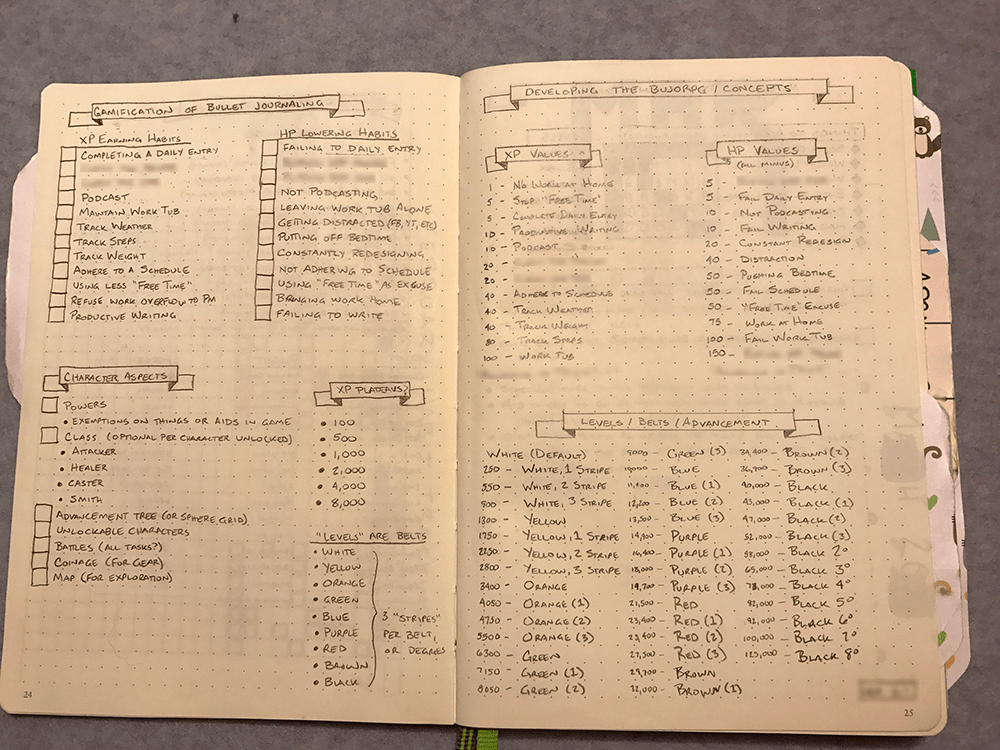 GAMIFICATION OF BULLET JOURNALING
XP EARNING HABITS
COMPLETING A DAILY ENTRY
PODCAST
MAINTAIN WORK TUB
TRACK WEATHER
TRACK STEPS
TRACK WEIGHT
ADHERE TO A SCHEDULE
USING LESS "FREE TIME"
REFUSE WORK OVERFLOW TO PM
PRODUCTIVE WRITING
HP LOWERING HABITS
FAILING TO DAILY ENTRY
NOT PODCASTING
LEAVING WORK TUB ALONE
GETTING DISTRACTED (FB, YT, ETC)
PUTTING OFF BEDTIME
CONSTANTLY REDESIGNING
NOT ADHERING TO SCHEDULE
USING "FREE TIME" AS EXCUSE
BRINGING WORK HOME
FAILING TO WRITE
CHARACTER ASPECTS
POWERS
• EXEMPTIONS ON THINGS OR AIDS IN GAME
CLASS (OPTIONAL PER CHARACTER UNLOCKED)
• ATTACKER
• HEALER
• CASTER
• SMITH
ADVANCEMENT TREE (OR SPHERE GRID)
UNLOCKABLE CHARACTERS
BATTLES (ALL TASKS?)
COINAGE (FOR GEAR)
MAP (FOR EXPLORATION)
XP PLATEAUS?
• 100
• 500
• 1,000
• 2,000
• 4,000
• 8,000
"LEVELS" ARE BELTS
• WHITE
• YELLOW
• ORANGE
• GREEN
• BLUE
• PURPLE
• RED
• BROWN
• BLACK
3 "STRIPES"
PER BELT,
OR DEGREES
24
DEVELOPING THE BUJORPG / CONCEPTS
XP VALUES
1 - NO WORK AT HOME
5 - STEP "FREE TIME"
5 - COMPLETE DAILY ENTRY
10 - PRODUCTIVE WRITING
10 - PODCAST
20 -
20 -
40 - ADHERE TO SCHEDULE
40 - TRACK WEATHER
40 - TRACK WEIGHT
80 - TRACK STEPS
100 - WORK TUB
HP VALUES
(ALL MINUS)
5 -
5 - FAIL DAILY ENTRY
10 - NOT PODCASTING
10 - FAIL WRITING
20 - CONSTANT REDESIGN
40 - DISTRACTION
50 - PUSHING BEDTIME
50 - FAIL SCHEDULE
50 - "FREE TIME" EXCUSE
75 - WORK AT HOME
100 - FAIL WORK TUB
150 -
LEVELS / BELTS / ADVANCEMENT
WHITE (DEFAULT)
250 - WHITE, 1 STRIPE
550 - WHITE, 2 STRIPE
900 - WHITE, 3 STRIPE
1300 - YELLOW
1750 - YELLOW, 1 STRIPE
2250 - YELLOW, 2 STRIPE
2800 - YELLOW, 3 STRIPE
3400 - ORANGE
4050 - ORANGE (1)
4750 - ORANGE (2)
5500 - ORANGE (3)
6300 - GREEN
7150 - GREEN (1)
8050 - GREEN (2)
9000 - GREEN (3)
10,000 - BLUE
BLUE (1)
12,200 - BLUE (2)
13,500 - BLUE (3)
PURPLE
16,400 - PURPLE (1)
18,000 - PURPLE (2)
19,700 - PURPLE (3)
21,500 - RED
23,400 - RED (1)
25,400 - RED (2)
27,500 - RED (3)
29,700 - BROWN
32,000 - BROWN (1)
34,400 - BROWN (2)
36,900 - BROWN (3)
40,000 - BLACK
43,000 - BLACK (1)
47,000 - BLACK (2)
52,000 - BLACK (3)
58,000 - BLACK 2°
65,000 - BLACK 3°
73,000 - BLACK 4°
82,000 - BLACK 5°
92,000 - BLACK 6°
100,000 - BLACK 7°
125,000 - BLACK 8°
25